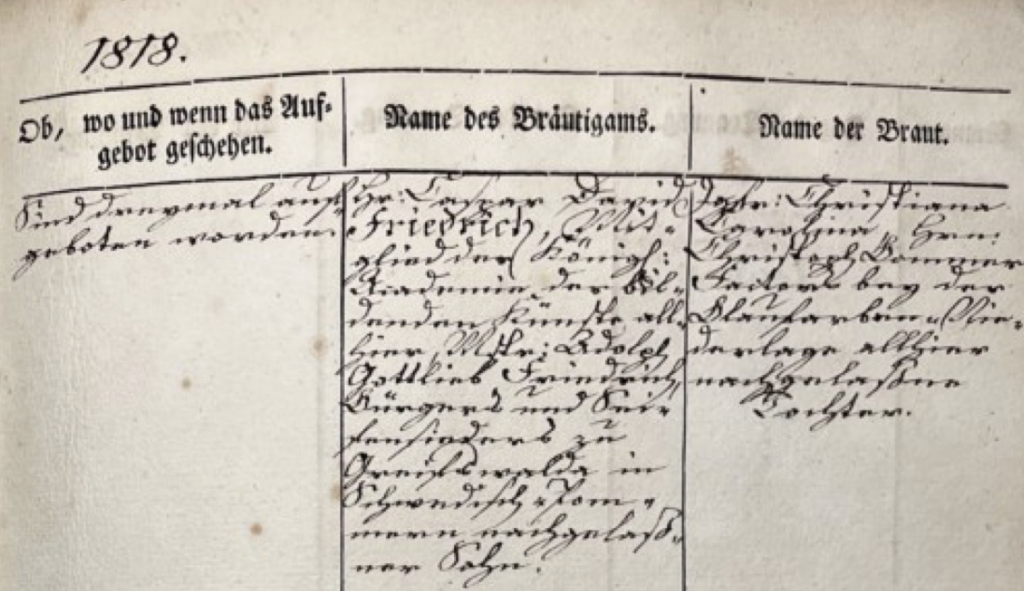 1818.
Ob, wo und wenn das Auf-
gebot geschehen.
Name des Bräutigams.
Name der Braut.
Sind dreymal auf-
geboten worden.
Hr: Caspar David
Friedrich, Mit-
glied der Königl:
Academie der bil-
denden Künste all-
hier, Mstr: Adolph
Gottlieb Friedrich,
Bürgers und Sei-
fensieders zu
Greifswalda in
Schwedisch-Pom-
mern nachgelaß-
ner Sohn.
Jgfr: Christiana
Carolina, Hrn:
Christoph Bommer
Factors bey der
Blaufarben-Nie-
derlage allhier
nachgelaßne
Tochter.